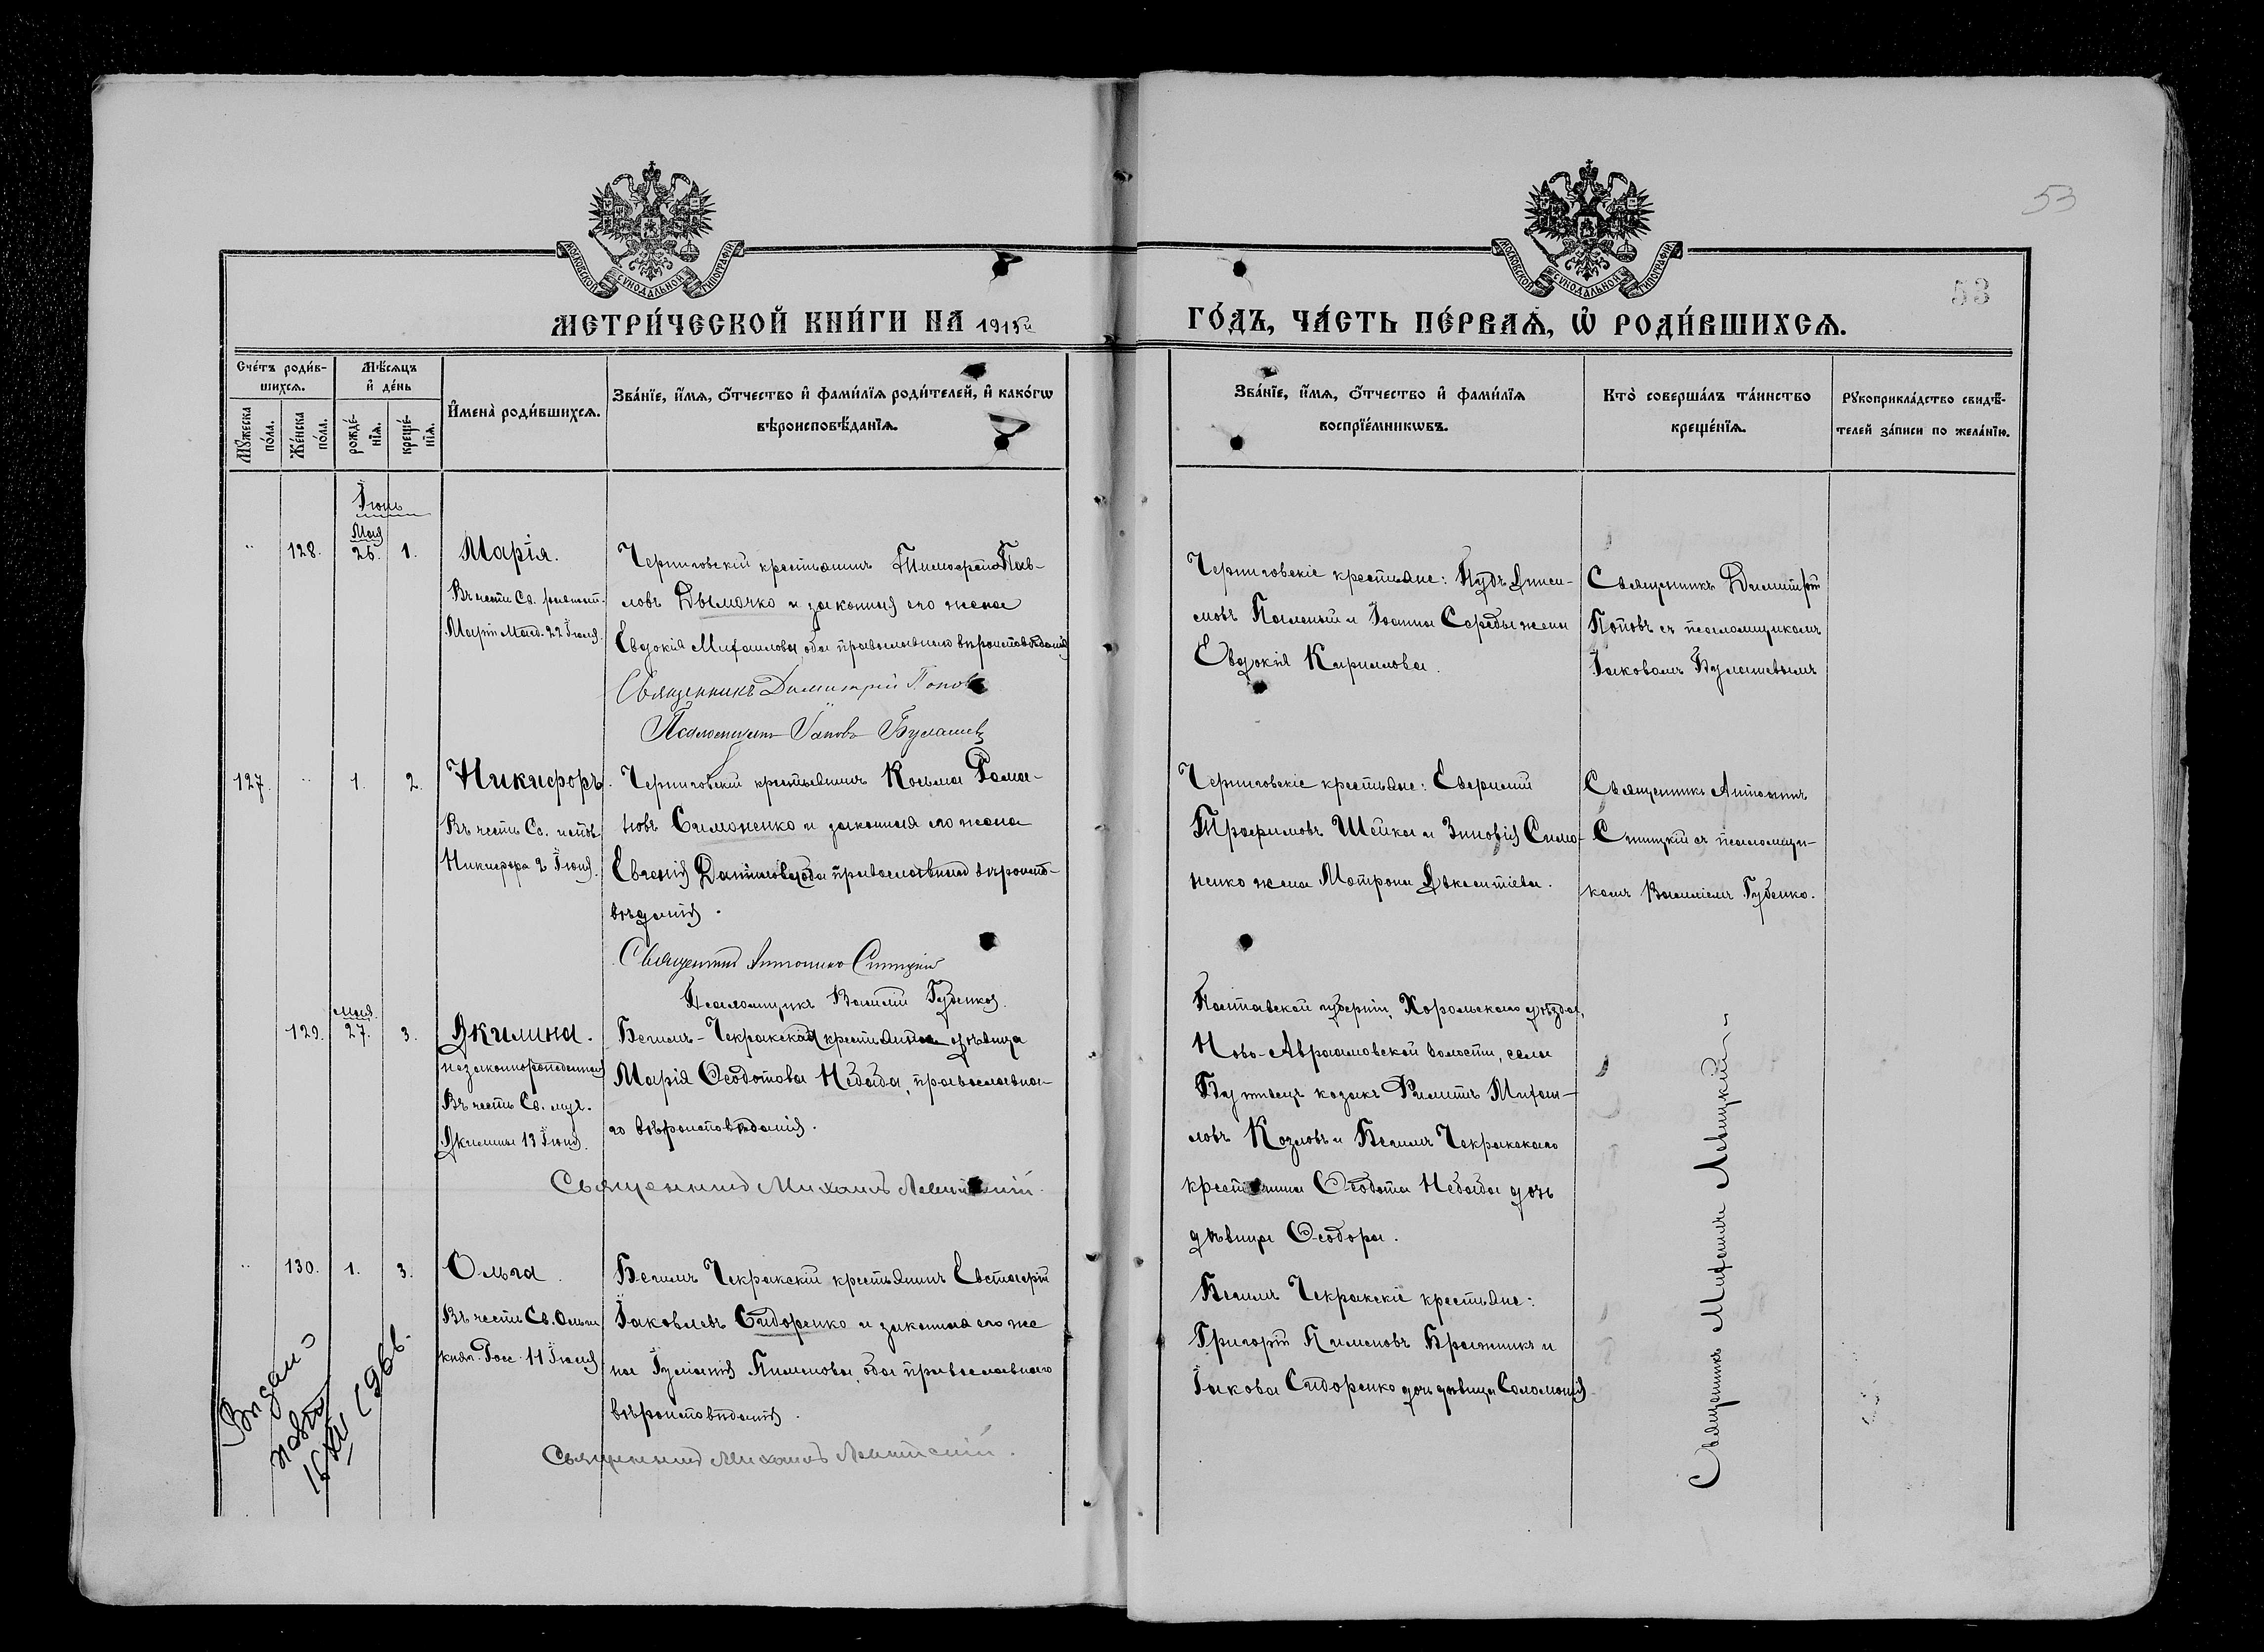 53
53
МОСКОВСКОЙ СѴНОДАЛЬНОЙ ТИПОГРАФІИ
МОСКОВСКОЙ СѴНОДАЛЬНОЙ ТИПОГРАФІИ
МЕТРИ́ЧЕСКОЙ КНИ́ГИ НА 1915й
ГО́ДЪ, ЧА́СТЬ ПЕ́РВАѦ, Ѡ҆ РОДИ́ВШИХСѦ.
Сче́тъ роди́в-
шихсѧ.
Мꙋ́жеска по́ла.
Же́нска по́ла.
Мѣ́сѧцъ
и҆ де́нь
рожде́-нїѧ.
креще́-нїѧ.
И҆мена̀ роди́вшихсѧ.
Зва́нїе, и҆́мѧ, ѻ҆́тчество и҆ фами́лїѧ роди́телей, и҆ како́гѡ
вѣроисповѣ́данїѧ.
Зва́нїе, и҆́мѧ, ѻ҆́тчество и҆ фами́лїѧ
воспрїе́мникѡвъ.
Кто̀ соверша́лъ та́инство
креще́нїѧ.
Рꙋкоприкла́дство свидѣ́-
телей за́писи по жела́нїю.
Іюнь
Мая
" 128. 26. 1. Марія.
Въ честь Св. равноап.
Маріи Магд. 22 Іюля.
Черниговскій крестьянинъ Тимофей Пав-
ловъ Дымочко и законная его жена
Евдокія Михаилова, оба православнаго вѣроисповѣданія
Священникъ Димитрій Поповъ
Псаломщикъ Іаковъ Булашев
Черниговскіе крестьяне: Кирилова
Евдокія Кирилова.
Священникъ Димитрій
Поповъ съ псаломщикомъ
Іаковомъ Булашевымъ
127. " 1. 2. Никифоръ.
Въ честь Св. исповѣд.
Никифора 2 Іюня.
Черниговскій крестьянинъ Косьма Рома-
новъ Симоненко и законная его жена
Евгенія Данилова, оба православнаго вѣроиспо-
вѣданія.
Священникъ Антонинъ Синицкій
Псаломщикъ Василій Губенко.
Черниговскіе крестьяне: Евфимій
Трофимовъ Шейка и Зиновія Симо-
ненко жена Матрона Авксентіева.
Священникъ Антонинъ
Синицкій съ псаломщи-
комъ Василіемъ Губенко.
мая
129. 27. 3. Акилина.
незаконнорожденная
Въ честь Св. муч.
Акилины 13 Іюня.
Бегимъ-Чекракская крестьянка дѣвица
Марія Ѳеодотова Небаба, православна-
го вѣроисповѣданія.
Священникъ Михаилъ Левитскій.
Полтавской губерніи, Хорольскаго уѣзда,
Ново-Аврамовской волости, села
козакъ Филиппъ Михаи-
ловъ Козловъ и Бегимъ Чекракскаго
крестьянина Ѳеодота Небаба дочь
дѣвица Ѳеодора.
" 130. 1. 3. Ольга.
Въ честь Св. Ольги
княг. Росс. 11 Іюля
Бегимъ Чекракскій крестьянинъ Евстафій
Іаковлевъ Сидоренко и законная его же
на Іуліанія Пименова, оба православнаго
вѣроисповѣданія.
Священникъ Михаилъ Левитскій.
Бегимъ Чекракскіе крестьяне:
Григорій Пименовъ Бражникъ и
Іакова Сидоренко дочь дѣвица Соломонія.
Священникъ Михаилъ Левицкій